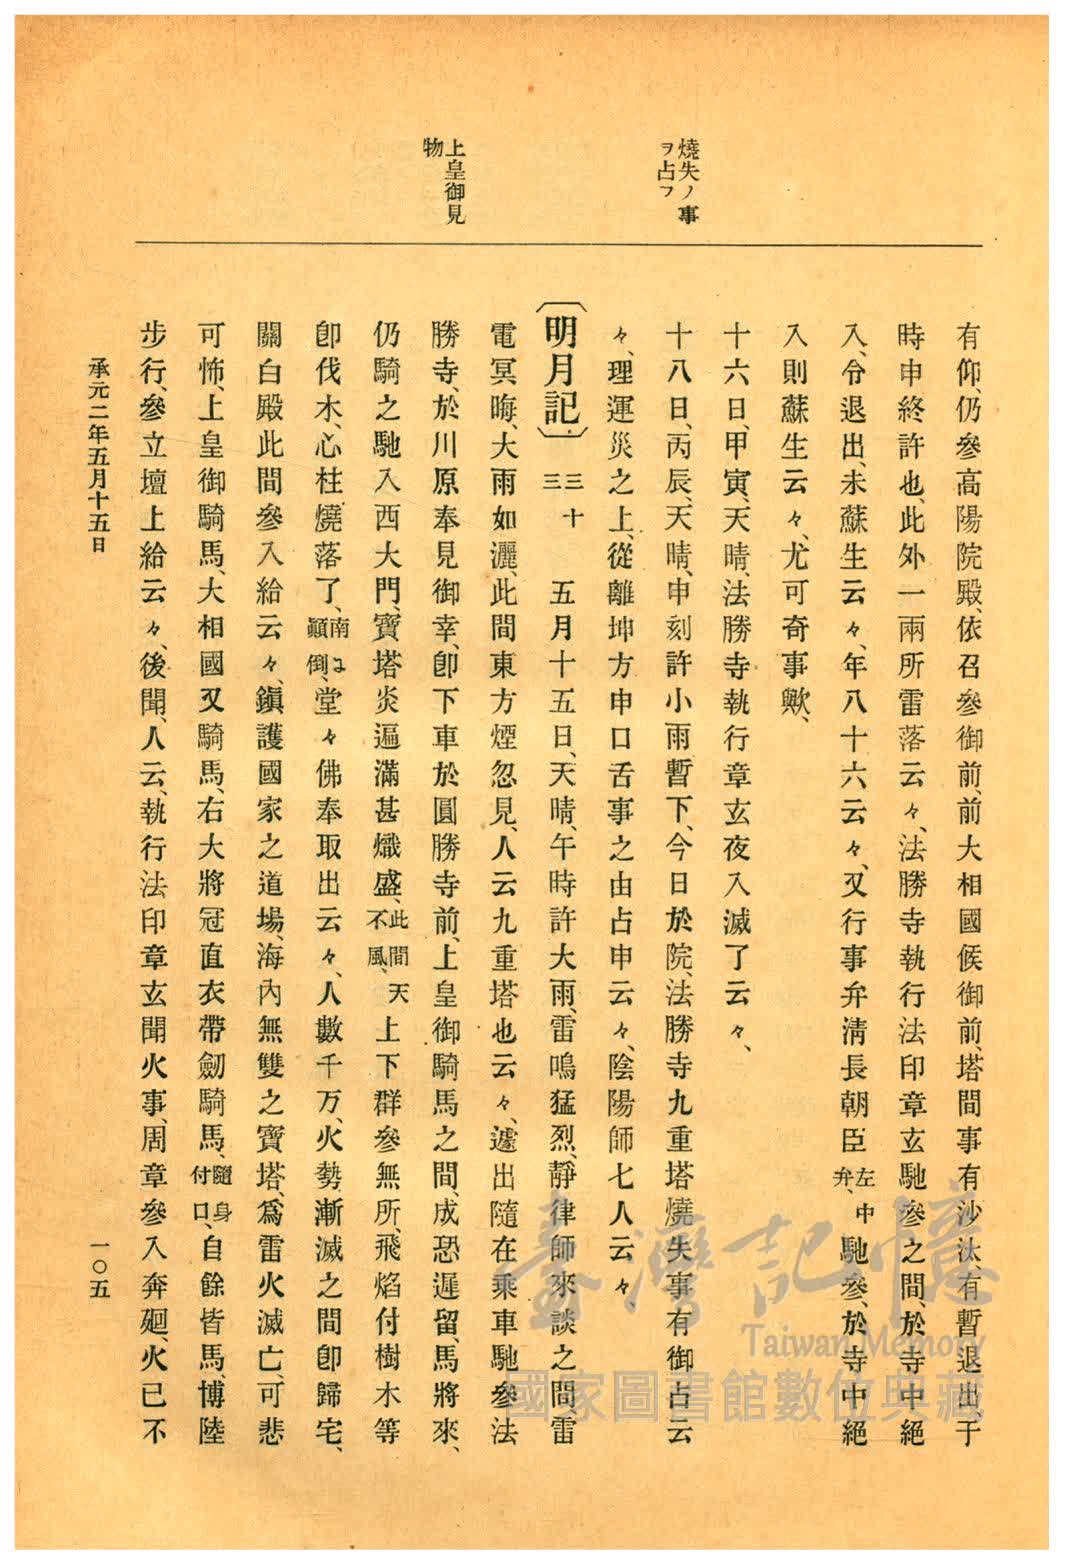 燒失ノ事
ヲ占フ
上皇御見
物
有仰、仍參高陽院殿、依召參御前、前大相國候御前、塔間事有沙汰、有暫退出、于
時申終許也、此外一兩所雷落云々、法勝寺執行法印章玄馳參之間、於寺中絕
入、令退出、未蘇生云々、年八十六云々、又行事弁淸長朝臣左中弁、馳參、於寺中絕
入則蘇生云々、尤可奇事歟、
十六日、甲寅、天晴、法勝寺執行章玄夜入滅了云々、
十八日、丙辰、天晴、申刻許小雨暫下、今日於院、法勝寺九重塔燒失事有御占云
々、理運災之上、從離坤方申口舌事之由占申云々、陰陽師七人云々、
〔明月記〕 三十三 五月十五日、天晴、午時許大雨、雷鳴猛烈、靜律師來談之間、雷
電冥晦、大雨如灑、此間東方煙忽見、人云九重塔也云々、遽出隨在乘車馳參法
勝寺、於川原奉見御幸、卽下車於圓勝寺前、上皇御騎馬之間、成恐遲留、馬將來、
仍騎之馳入西大門、寶塔炎遍滿甚熾盛、此間不風、天上下群參無所、飛焰付樹木等
卽伐木、心柱燒落了、南ニ顚倒、堂々佛奉取出云々、人數千万、火勢漸滅之間卽歸宅、
關白殿此間參入給云々、鎭護國家之道場、海內無雙之寶塔、爲雷火滅亡、可悲
可怖、上皇御騎馬、大相國又騎馬、右大將冠直衣帶劒騎馬、隨身付口、自餘皆馬、博陸
步行、參立壇上給云々、後聞、人云、執行法印章玄聞火事、周章參入奔廻、火已不
承元二年五月十五日
一〇五
臺灣記憶
Taiwan Memory
國家圖書館數位典藏